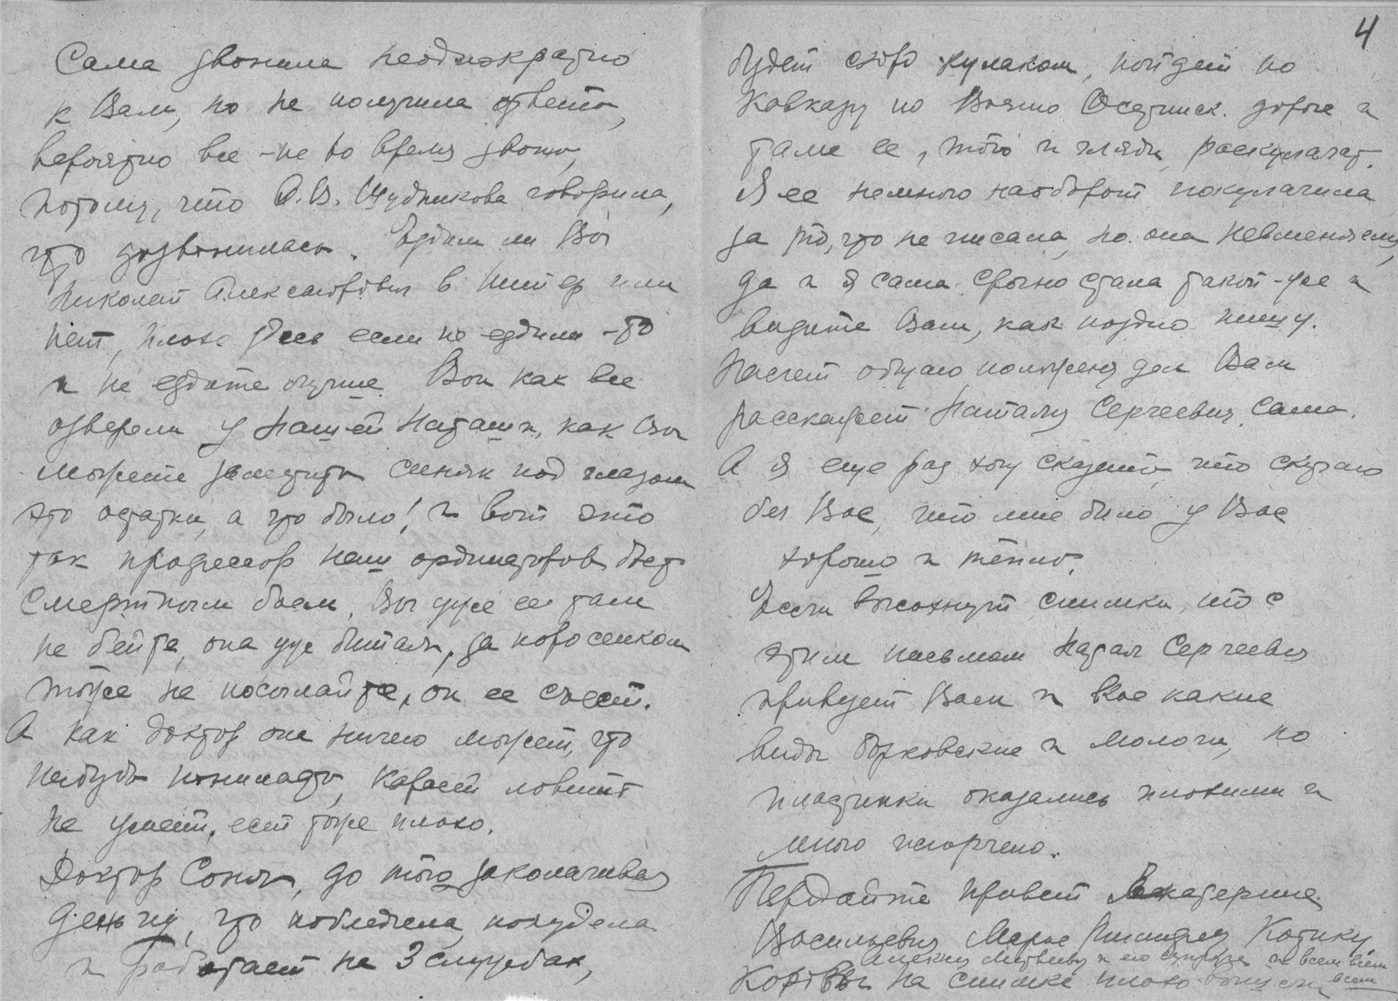 Сама звонила неоднократно
к Вам, но не получила ответа,
вероятно все-не во время звоню,
потому, что А.В. Шудникова говорила,
что дозвонилась. Ездили ли Вы
Николай Александрович в Питер или
нет, плохо если не ездили - то
и не ездите лучше. Вон как все
озверели у нашей Наташи, как Вы
можете заметить синяк под глазом
это остатки, а что было! и вот это
так профессор наш ординаторов бьет
смертным боем. Вы уже ее там
не бейте, она уже битая, за поросенком
тоже не посылайте, он ее съест.
А как доктор она ничего может, что
нибудь понимать, карасей ловить
не умеет, ест тоже плохо.
Доктор Соня, до того заколачивая
деньгу, что побледнела, похудела
и работает на 3 службах,
4
будет скоро кулаком, пойдет по
Кавказу по Военно Осетинск. дороге и
там ее, того и гляди, раскулачат.
Я ее немного наоборот покулачила
за то, что не писала, но она невменяема,
да и я сама срочно стала такой-же и
видите Вам, как поздно пишу.
Насчет общего положения дел Вам
расскажет Наталия Сергеевна сама.
А я еще раз хочу сказать, что скучаю
без Вас, что мне было у Вас
хорошо и тепло.
Если высохнут снимки, то с
этим письмом Натал Сергеевна
привезет Вам и кое какие
виды борковские и Мологи, но
пластинки оказались плохими и
много испорчено.
Передайте привет Екатерине
Васильевне, Марье Котику,
Алексею Матвеевичу и его супруге и всем всем
всем
на снимке плохо